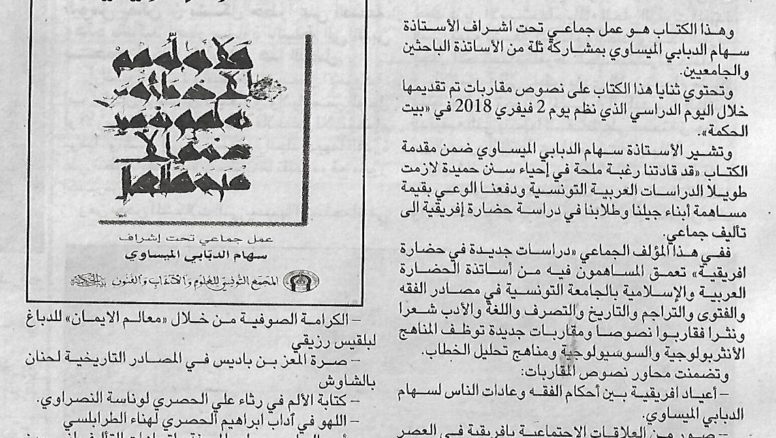 وهذا الكتاب هو عمل جماعي تحت اشراف الأستاذة
سهام الدبابي الميساوي بمشاركة ثلة من الأساتذة الباحثين
والجامعيين.
وتحتوي ثنايا هذا الكتاب على نصوص مقاربات تم تقديمها
خلال اليوم الدراسي الذي نظم يوم 2 فيفري 2018 في «بيت
الحكمة».
وتشير الأستاذة سهام الدبابي الميساوي ضمن مقدمة
الكتاب «قد قادتنا رغبة ملحة في إحياء سنن حميدة لازمت
طويلا الدراسات العربية التونسية ودفعنا الوعي بقيمة
مساهمة أبناء جيلنا وطلابنا في دراسة حضارة إفريقية الى
تأليف جماعي.
ففي هذا المؤلف الجماعي «دراسات جديدة في حضارة
افريقية» تعمق المساهمون فيه من أساتذة الحضارة
العربية والإسلامية بالجامعة التونسية في مصادر الفقه
والفتوى والتراجم والتاريخ والتصرف واللغة والأدب شعرا
ونثرا فقاربوا نصوصا ومقاربات جديدة توظف المناهج
الأنثربولوجية والسوسيولوجية ومناهج تحليل الخطاب.
وتضمنت محاور نصوص المقاربات:
– أعياد افريقية بين أحكام الفقه وعادات الناس لسهام
الدبابي الميساوي.
من العلاقات الاجتماعية بافريقية في العصر
عمل جماعي تحت إشراف
سهام الدبّابي الميساوي
المجمع التونسي للعلوم والآداب والفنون بيت الحكمة
– الكرامة الصوفية من خلال «معالم الايمان» للدباغ
لبلقيس رزيقي
– صرة المعز بن باديس في المصادر التاريخية لحنان
بالشاوش
– كتابة الألم في رثاء علي الحصري لوناسة النصراوي.
– اللهو في آداب ابراهيم الحصري لهناء الطرابلسي